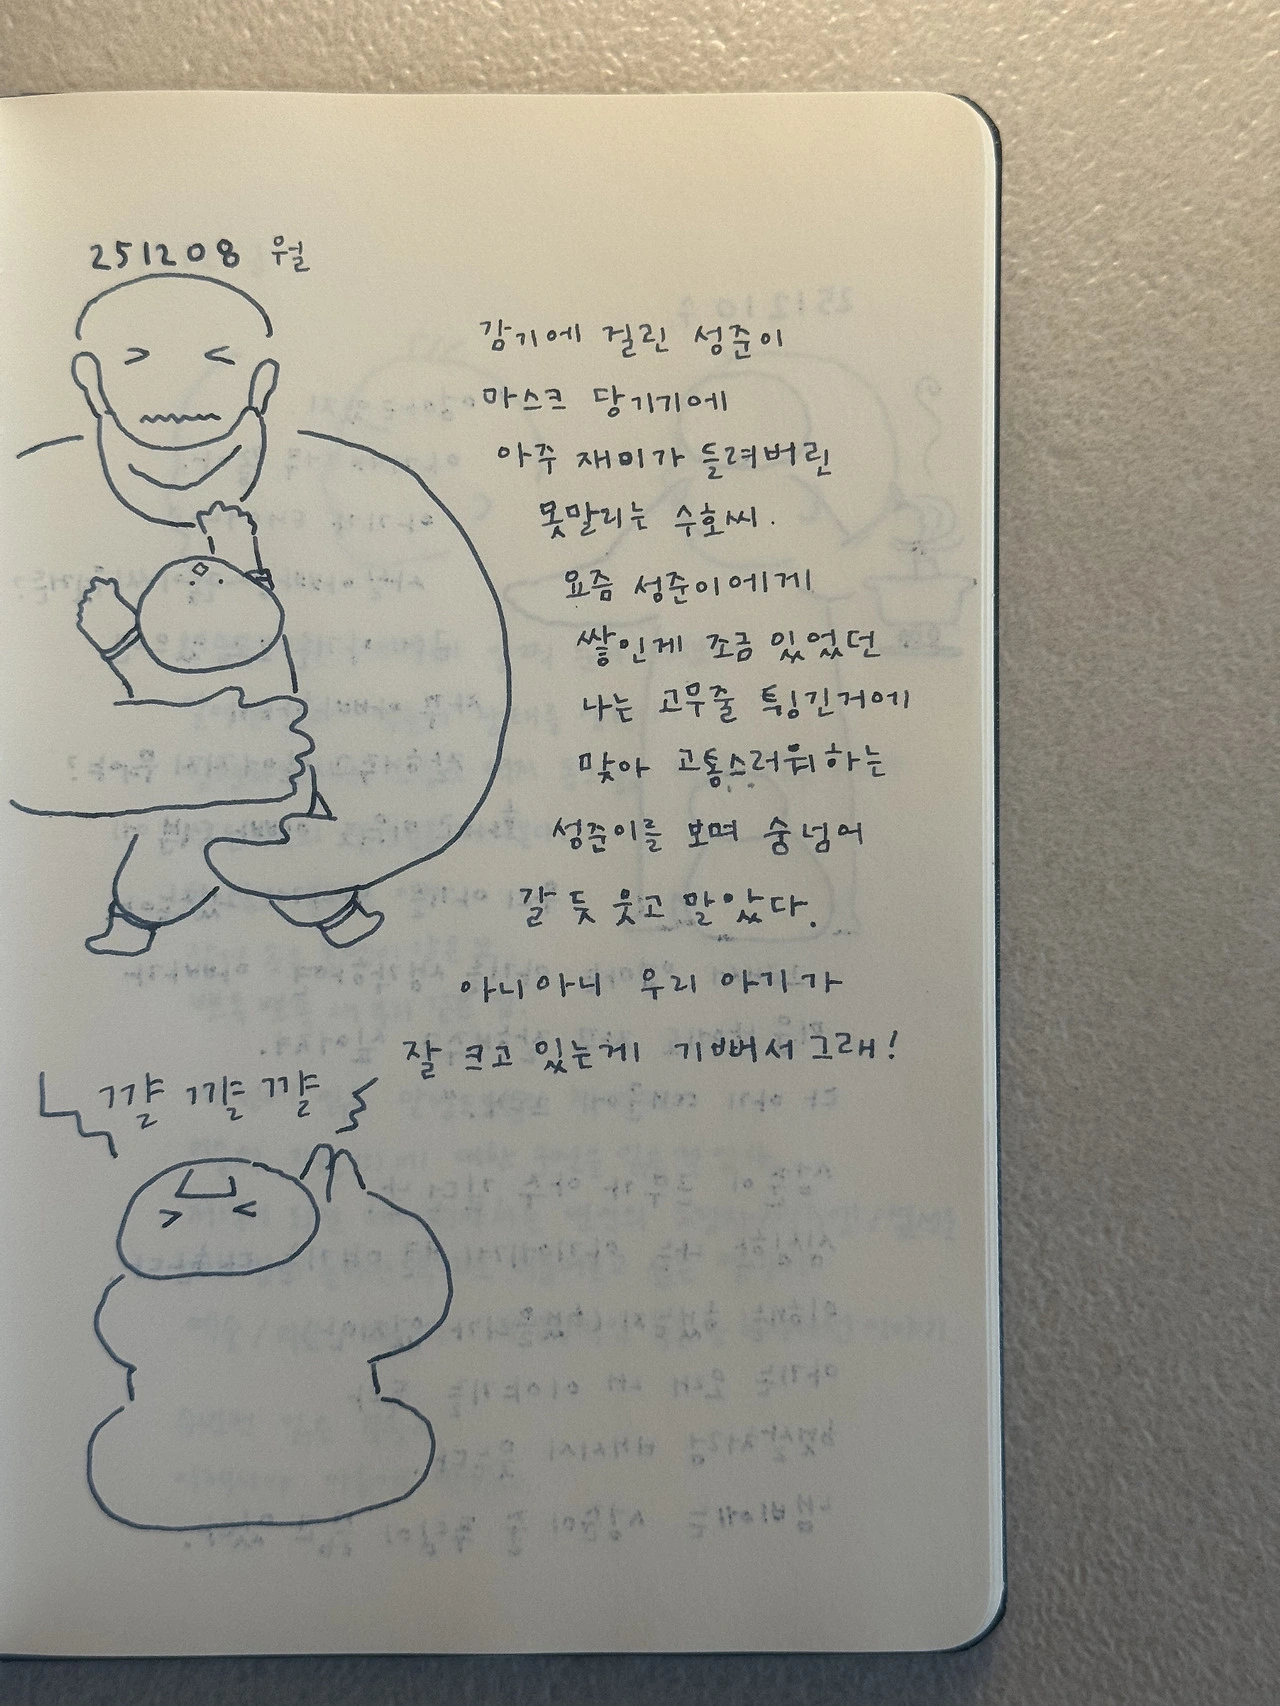 251208 월
감기에 걸린 성준이
마스크 당기기에
아주 재미가 들려버린
못말리는 수호씨.
요즘 성준이에게
쌓인게 조금 있었던
나는 고무줄 튕긴거에
맞아 고통스러워하는
성준이를 보며 숨넘어
갈 듯 웃고 말았다.
아니아니 우리 아기가
잘 크고 있는게 기뻐서그래!
꺌 꺌 꺌